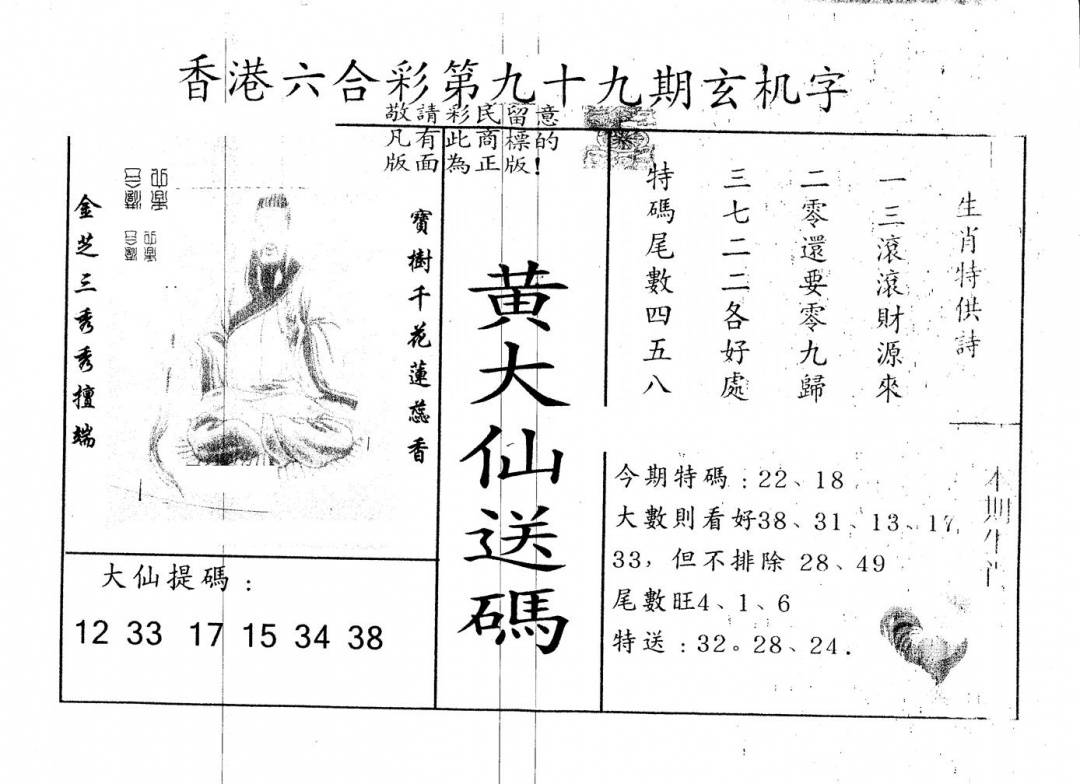 香港六合彩第九十九期玄机字
敬請彩民留意
凡有此商標的
版面為正版!
生肖特供詩
一三滾滾財源來
二零還要零九歸
三七二二各好處
特碼尾數四五八
黄大仙送碼
寶樹千花蓮蕊香
金芝三秀秀擅端
大仙提碼:
12 33 17 15 34 38
今期特碼:22、18
大數則看好38、31、13、17,
33,但不排除 28、49
尾數旺4、1、6
特送:32。28、24.
本期生肖